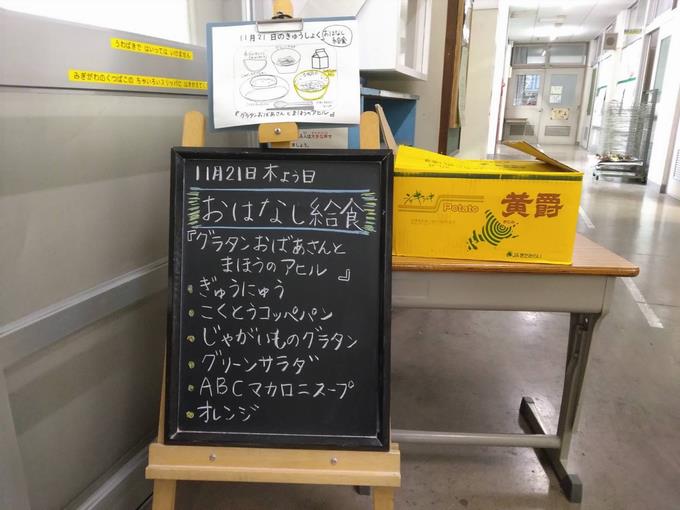 うわばきで はいっては いけません
みぎがわのくつばこの ちゃいろいスリッパに はきかえて
11月21日のきゅうしょく
おはなし
給食
『グラタンおばあさんとまほうのアヒル』
11月21日 木よう日
おはなし給食
『グラタンおばあさんと
まほうのアヒル 』
ぎゅうにゅう
こくとうコッペパン
じゃがいものグラタン
グリーンサラダ
ABCマカロニスープ
オレンジ
Potato
黄爵
JAきたみらい